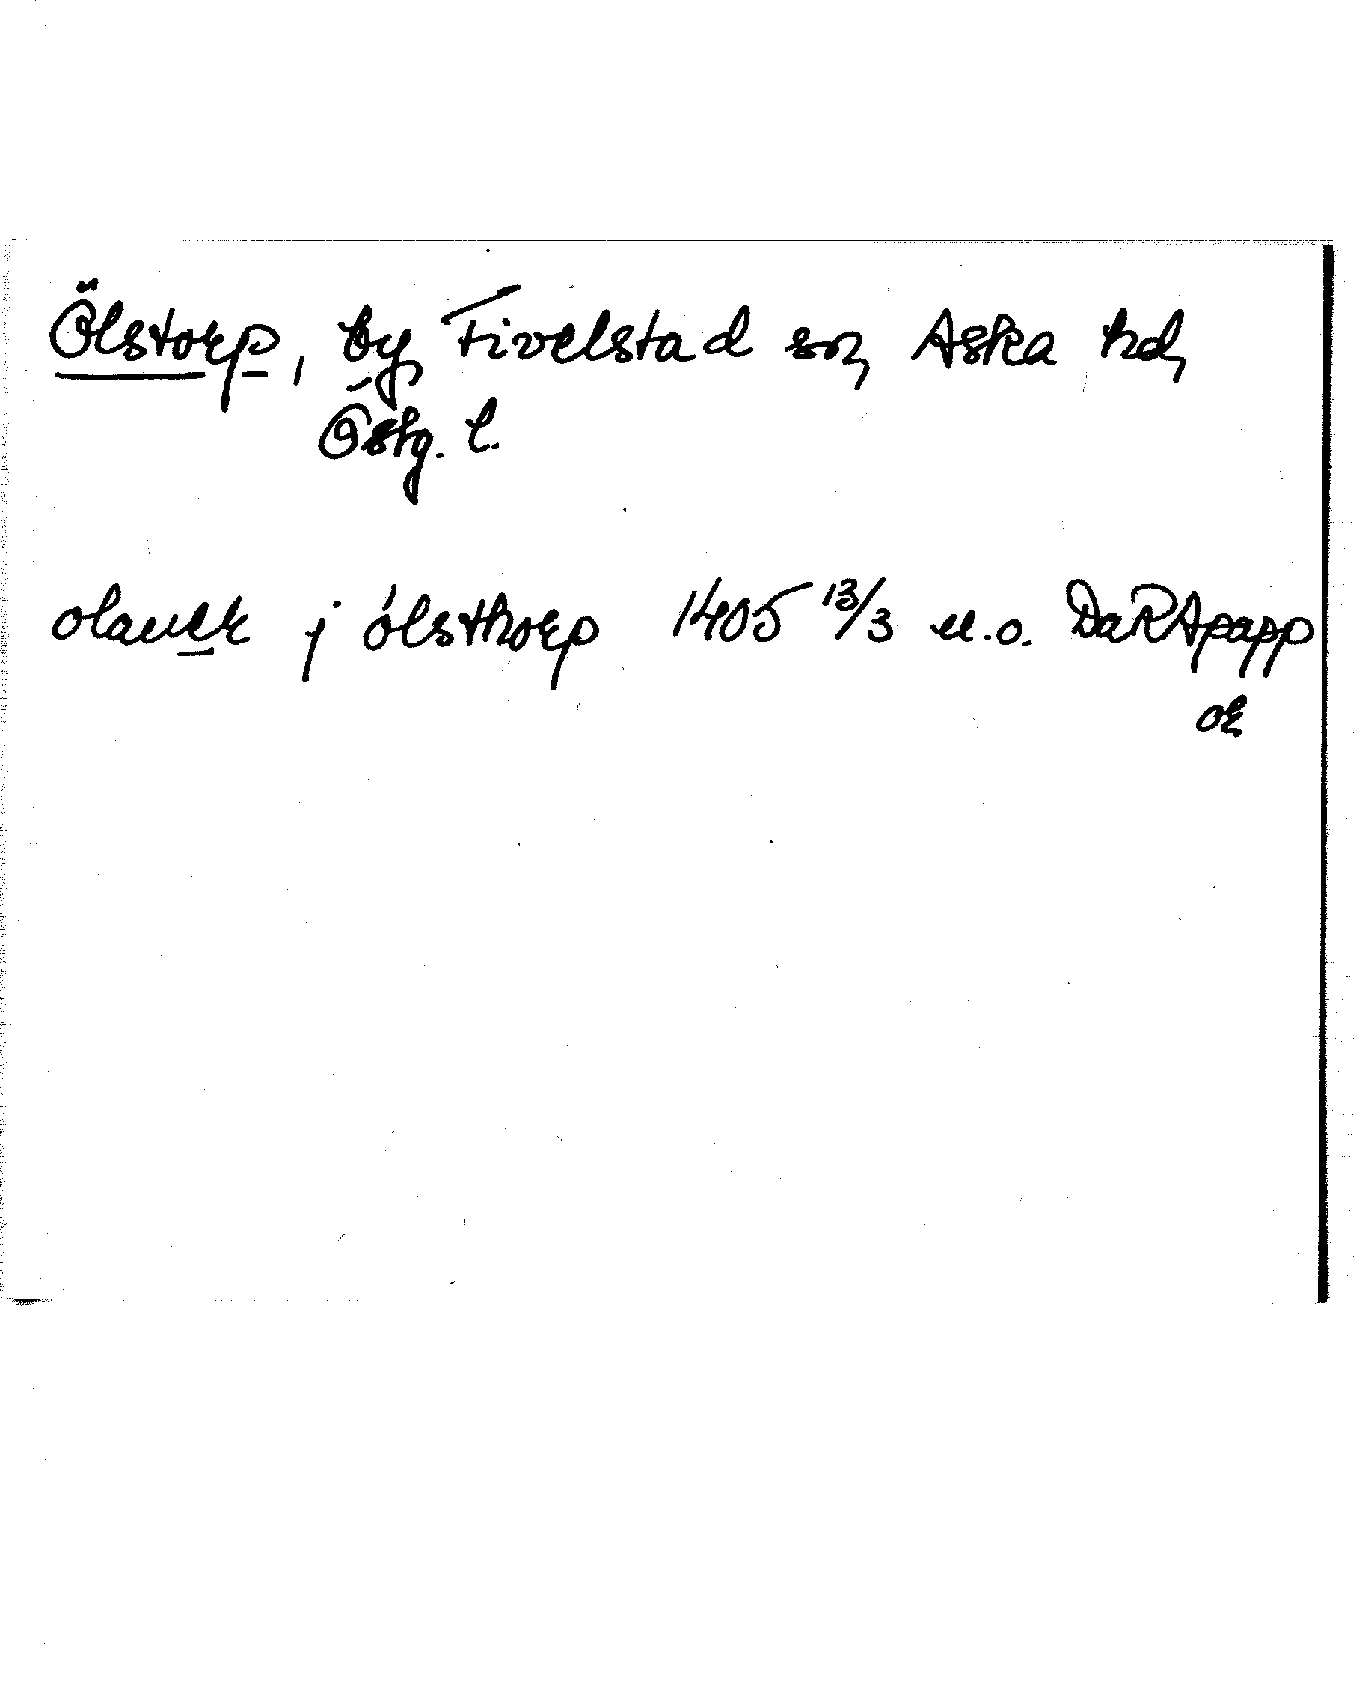 Ölstorp, by, Fivelstad sn, Aska hd,
Östg. l.
olauer j ólsthorp 1405 13/3 u.o. DaRApapp
or